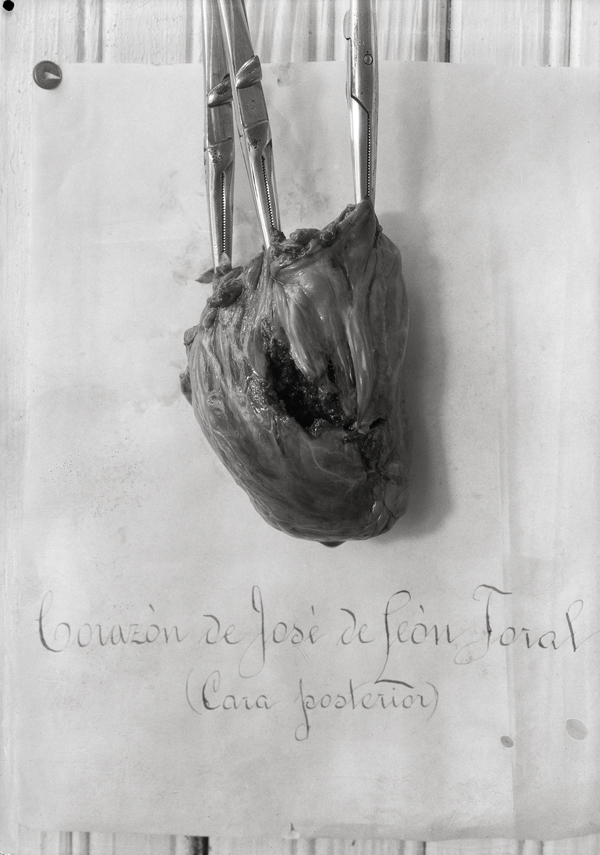 Corazòn de José de Leòn Toral
(Cara posterior)